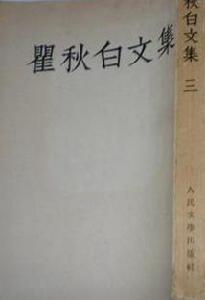 瞿秋白文集
秋白文集
三
人民文學出版社